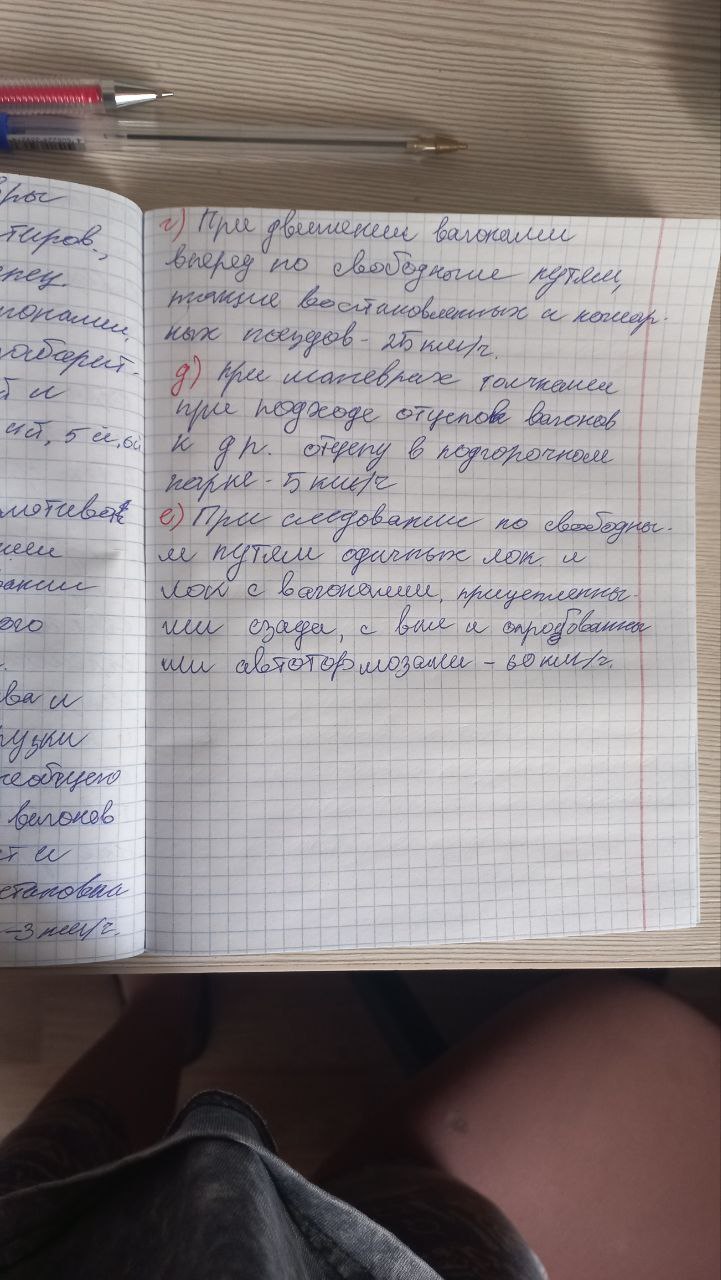 тиров.,
спец.
гонами,
габарит-
й и
ий, 5й, 6й
ого
ва и
рузки
необщего
вагонов
ст и
становка
-3 км/ч.
г) При движении вагонами
вперед по свободным путям,
также востановленных и пожар-
ных поездов - 25 км/ч.
д) При маневрах толчками
при подходе отцепов вагонов
к др. отцепу в подгорочном
парке - 5 км/ч
е) При следовании по свободны-
м путям одичных лок. и
лок с вагонами, прицепленны-
ми сзади, с вкл и опробованны
ми автотормозами - 60 км/ч.